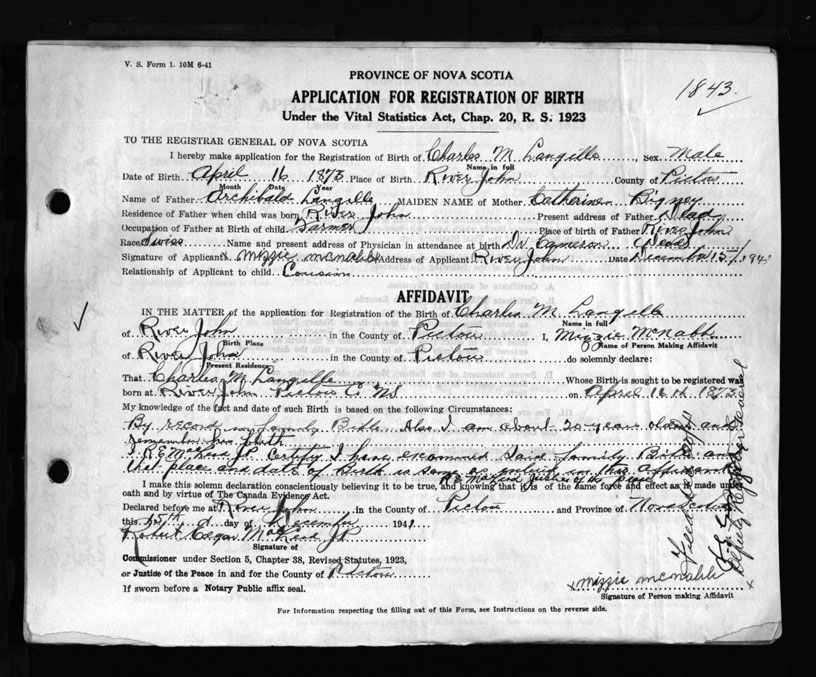 V. S. Form 1. 10M 6-41
PROVINCE OF NOVA SCOTIA
APPLICATION FOR REGISTRATION OF BIRTH
Under the Vital Statistics Act, Chap. 20, R. S. 1923
1843.
TO THE REGISTRAR GENERAL OF NOVA SCOTIA
I hereby make application for the Registration of Birth of Charles M Langille, Sex Male
Name in full
Date of Birth April 16 1873 Place of Birth River John County of Pictou
Month Date Year
Name of Father Archibald Langille MAIDEN NAME of Mother Catherine Bigney
Residence of Father when child was born River John Present address of Father Dead
Occupation of Father at Birth of child Farmer Place of birth of Father River John
Race Swiss Name and present address of Physician in attendance at birth Dr. Cameron Dead
Signature of Applicant x Mizzie McNabb Address of Applicant River John Date December 15/194
Relationship of Applicant to child Cousin
AFFIDAVIT
IN THE MATTER of the application for Registration of the Birth of Charles M Langille
Name in full
of River John in the County of Pictou I, Mizzie McNabb
Birth Place Name of Person Making Affidavit
of River John in the County of Pictou do solemnly declare:
Present Residence
That Charles M Langille Whose Birth is sought to be registered was
born at River John Pictou Co NS on April 16th 1873
My knowledge of the fact and date of such Birth is based on the following Circumstances:
By record in family Bible. Also I am about 20 years older and
remember his birth
I R E McLeod JP Certify I have examined Said family Bible and
that place and date of Birth is same as in this Affidavit
R E McLeod Justice of the peace
I make this solemn declaration conscientiously believing it to be true, and knowing that it is of the same force and effect as if made under
oath and by virtue of The Canada Evidence Act.
Declared before me at River John in the County of Pictou and Province of Nova Scotia
this 15th day of December 1941
Robert Edgar McLeod JP
Signature of
Commissioner under Section 5, Chapter 38, Revised Statutes, 1923,
or Justice of the Peace in and for the County of Pictou
If sworn before a Notary Public affix seal.
x Mizzie McNabb x
Signature of Person making Affidavit
For Information respecting the filling out of this Form, see Instructions on the reverse side.
Deputy Registrar General